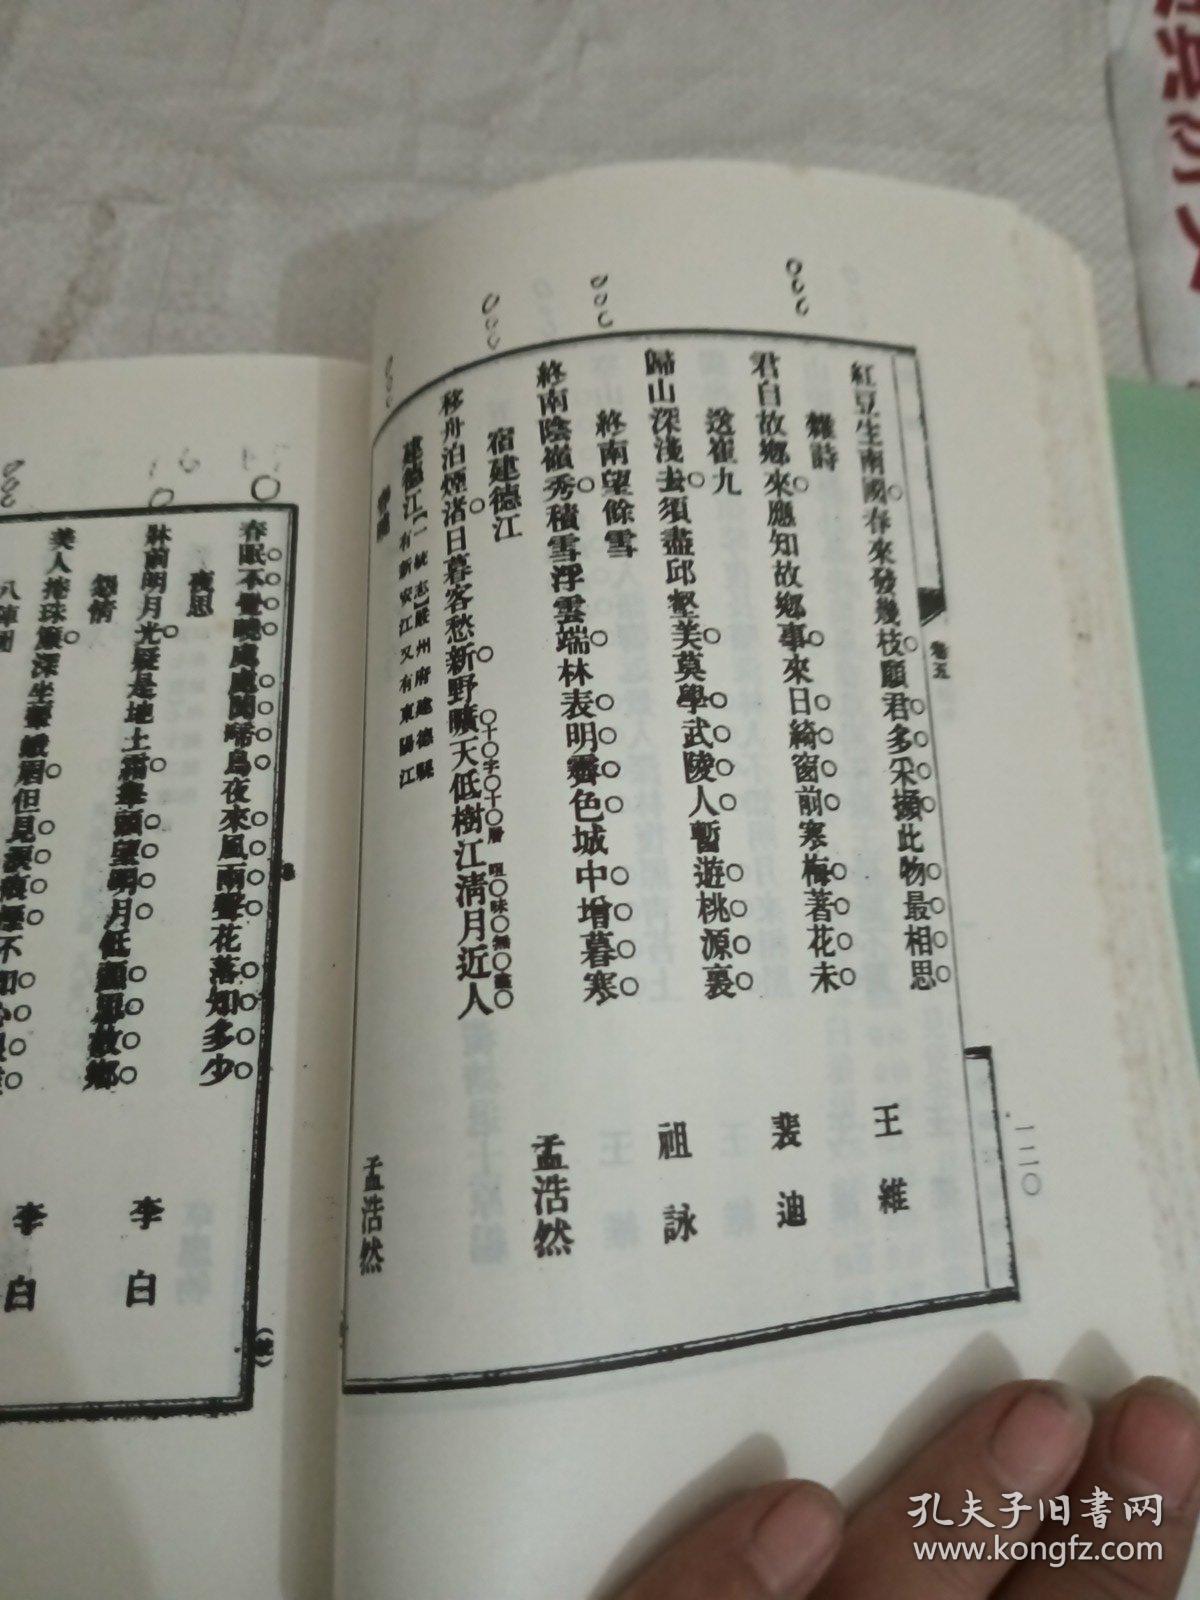 紅豆生南國春來發幾枝願君多采擷此物最相思
雜詩
王維
君自故鄉來應知故鄉事來日綺窗前寒梅著花未
送崔九
裴迪
歸山深淺去須盡邱壑美莫學武陵人暫遊桃源裏
終南望餘雪
祖詠
終南陰嶺秀積雪浮雲端林表明霽色城中增暮寒
宿建德江
孟浩然
移舟泊煙渚日暮客愁新野曠天低樹江清月近人
建德江【一統志】嚴州府建德縣
有新安江又有東陽江
孟浩然
卷五
一二〇
春眠不覺曉處處聞啼鳥夜來風雨聲花落知多少
夜思
李白
牀前明月光疑是地上霜舉頭望明月低頭思故鄉
怨情
李白
美人捲珠簾深坐顰蛾眉但見淚痕溼不知心恨誰
八陣圖
孔夫子旧书网
www.kongfz.com